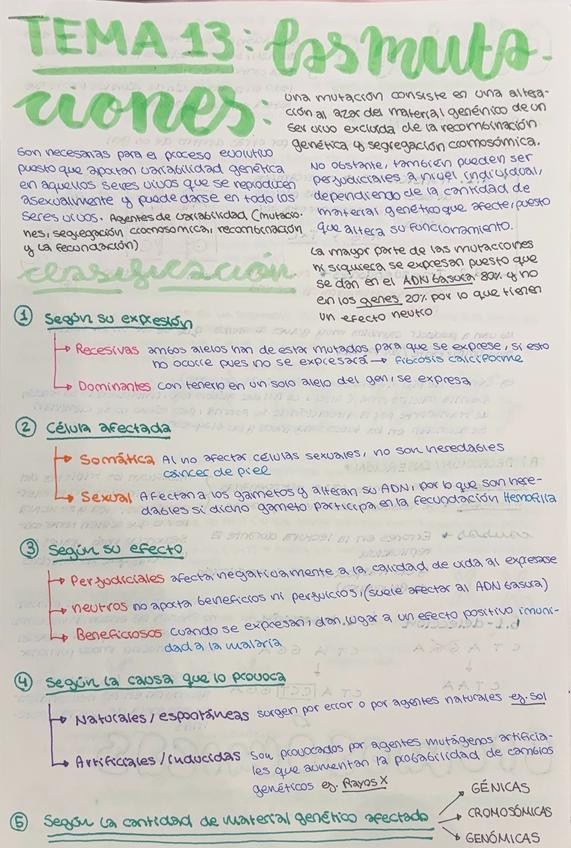 TEMA 13: las muta-
ciones:
una mutación consiste en una altera-
ción al azar del material genénico de un
ser vivo excluida de la recombinación
genética y segregación cromosómica.
Son necesarias para el proceso evolutivo
puesto que aportan variabilidad genética
en aquellos seres vivos que se reproducen
asexualmente y puede darse en todo los
seres vivos. Agentes de variabilidad (mutacio-
nes, segregación cromosomica, recombinación
y la fecundación)
No obstante, también pueden ser
perjudiciales a nivel individual,
dependiendo de la cantidad de
material genético que afecte, puesto
que altera su funcionamiento.
La mayor parte de las mutaciones
ni siquiera se expresan puesto que
se dan en el ADN basura 80% y no
en los genes 20% por lo que tienen
un efecto neutro
clasificación
① Según su expresión
Recesivas ambos alelos han de estar mutados para que se exprese, si esto
no ocurre pues no se expresará → fibrosis calciforme
Dominantes con tenerlo en un solo alelo del gen, se expresa
② Célula afectada
Somática Al no afectar células sexuales, no son heredables
cáncer de piel
Sexual Afectan a los gametos y alteran su ADN, por lo que son here-
dables si dicho gameto participa en la fecundación Hemofilia
③ Según su efecto
Perjudiciales afecta negativamente a la calidad de vida al expresarse
neutros no aporta beneficios ni perjuicios, (suele afectar al ADN basura)
Beneficiosos cuando se expresan, dan lugar a un efecto positivo inmuni-
dad a la malaria
④ Según la causa que lo provoca
Naturales/espontáneas surgen por error o por agentes naturales ej. sol
Artificiales/inducidas Son provocados por agentes mutágenos artificia-
les que aumentan la probabilidad de cambios
genéticos ej. Rayos X
⑤ Según la cantidad de material genético afectado
GÉNICAS
CROMOSÓMICAS
GENÓMICAS